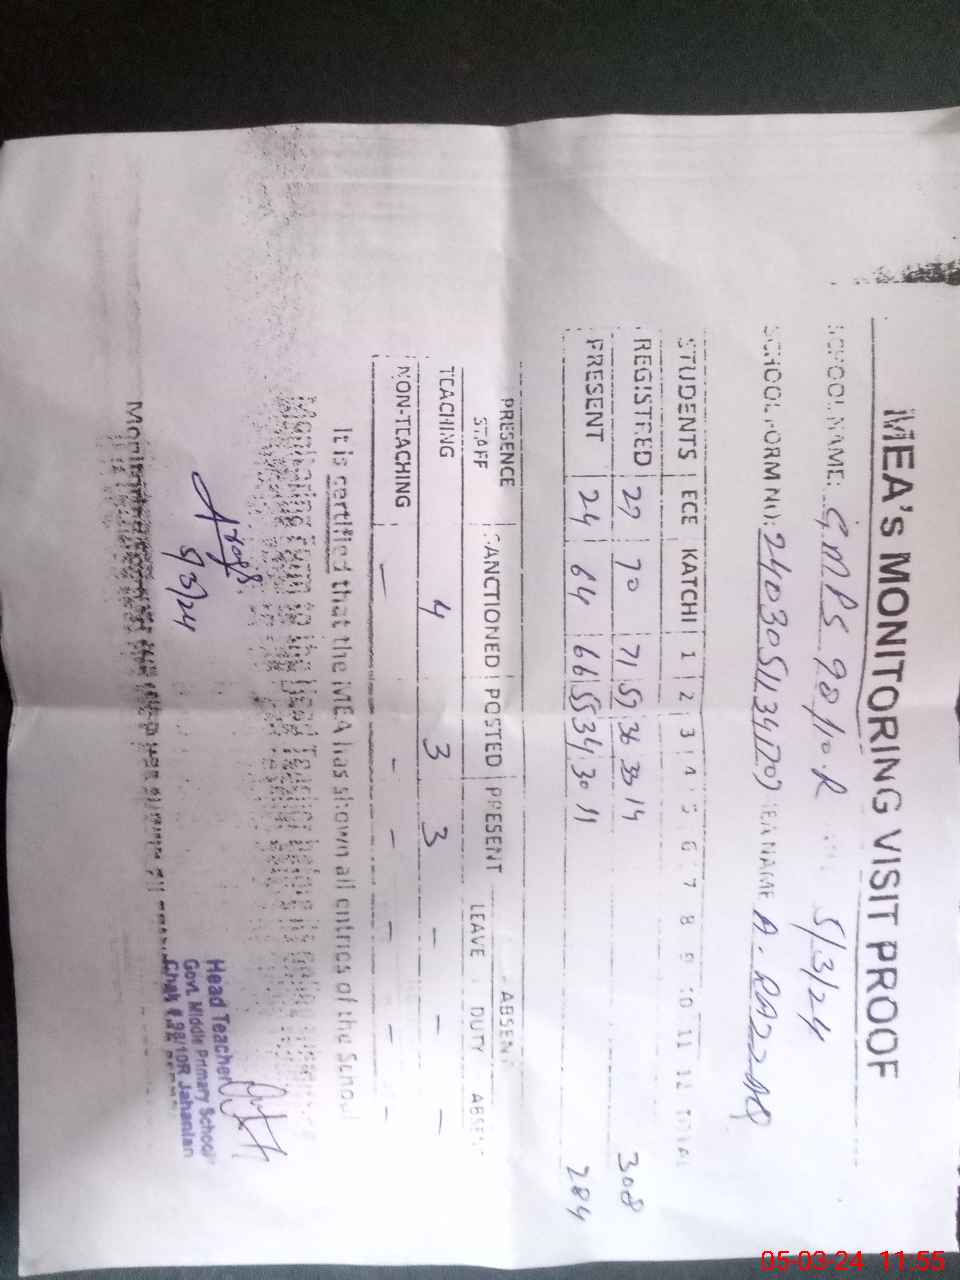 MEA's MONITORING VISIT PROOF
SCHOOL NAME: G.MPS 98/10.R 5/3/24
SCHOOL FORM NO: NAME A. RAZZAQ
STUDENTS ECE KATCHI 1 2 3 4 5 6 7 8 9 10 11 12 TOTAL
REGISTRED 29 70 71 59 36 33 14 308
PRESENT 24 64 66 55 34 30 11 284
PRESENCE ABSENT
STAFF SANCTIONED POSTED PRESENT LEAVE DUTY ABSENT
TEACHING 4 3 3 - - -
NON-TEACHING - - - - - -
It is certified that the MEA has shown all entries of the School
Monitoring Form to the Head Teacher
5/3/24
Head Teacher
Govt. Middle Primary School
Chak # 98/10R Jahanian
05-03-24 11:55